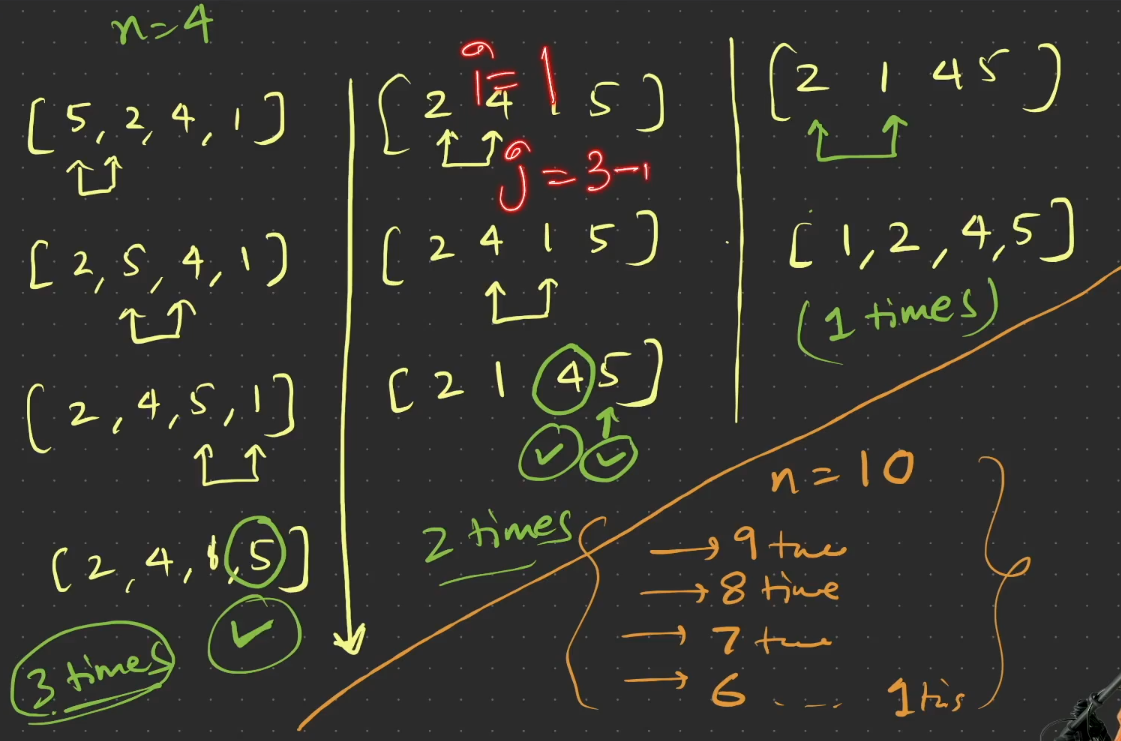 n=4
[5,2,4,1]
[2,5,4,1]
[2,4,5,1]
[2,4,1,5]
3 times
[2 4 1 5]
i=1
j=3-1
[2 4 1 5]
[2 1 4 5]
2 times
[2 1 4 5]
[1,2,4,5]
(1 times)
n=10
→ 9
→ 8 time
→ 7
→ 6 .... 1